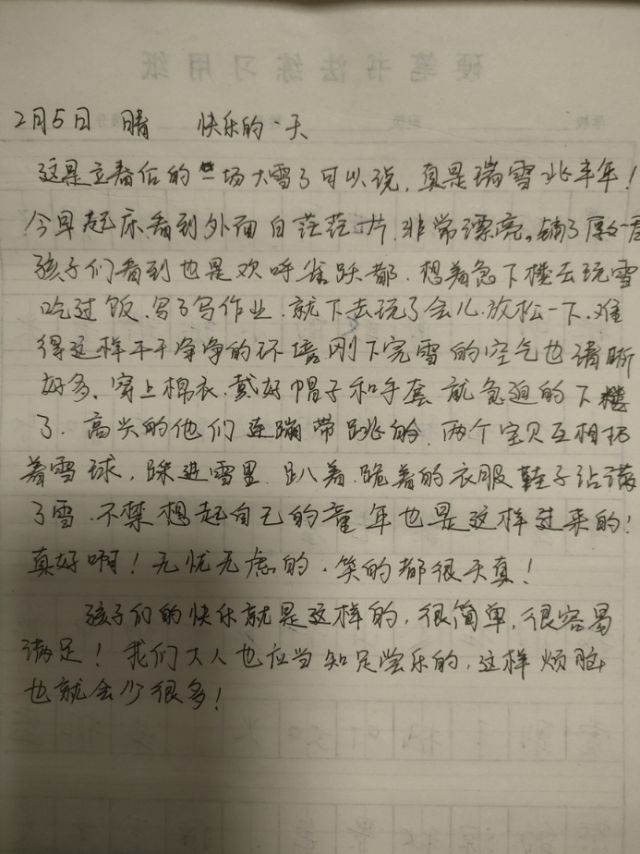 硬笔书法练习用纸
2月5日 晴 快乐的一天
这是立春后的一场大雪了可以说,真是瑞雪兆丰年!
今早起床看到外面白茫茫一片,非常漂亮。铺了厚厚一层
孩子们看到也是欢呼雀跃都,想着急下楼去玩雪
吃过饭,写了写作业,就下去玩了会儿,放松一下,难
得这样干干净净的环境刚下完雪的空气也清晰
好多,穿上棉衣,戴好帽子和手套就急迫的下楼
了,高兴的他们连蹦带跳的,两个宝贝互相扔
着雪球,踩进雪里,趴着,跪着的衣服鞋子沾满
了雪,不禁想起自己的童年也是这样过来的!
真好啊!无忧无虑的,笑的都很天真!
孩子们的快乐就是这样的,很简单,很容易
满足!我们大人也应当知足常乐的,这样烦恼
也就会少很多!